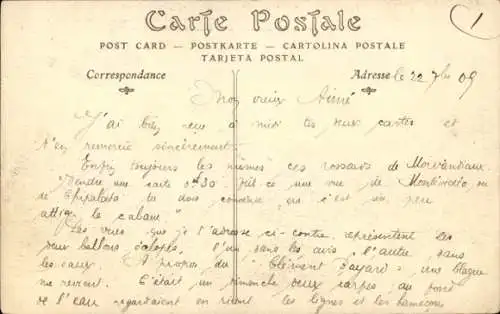 Carte Postale
POST CARD — POSTKARTE — CARTOLINA POSTALE
TARJETA POSTAL
Correspondance
Adresse
1
le 22 7bre 09
Mon vieux Aimé
J'ai bien reçu à midi tes deux cartes et
t'en remercie sincèrement.
Enfin toujours les mêmes ces rossards de
"Vendre une carte 0f30 fut-ce une vue de Montévidéo, ou
de tu dois convenir que c'est un peu
la cabane"
Les vues que je t'adresse ci-contre, représentent les
deux ballons l'un, sans les avis, l'autre, sans
les eaux. A propos du "Clément Bayard", une blague
me revient. C'était un dimanche deux carpes au fond
de l'eau regardaient en riant les lignes et les hameçons